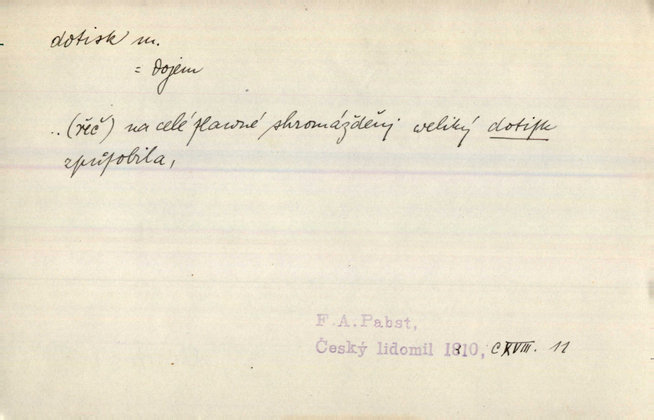 dotisk m.
= dojem
.. (řeč) na celé ſlawné shromážděnj weliký dotiſk
zpuſobila,
F. A. Pabst,
Český lidomil 1810, CXVIII. 11